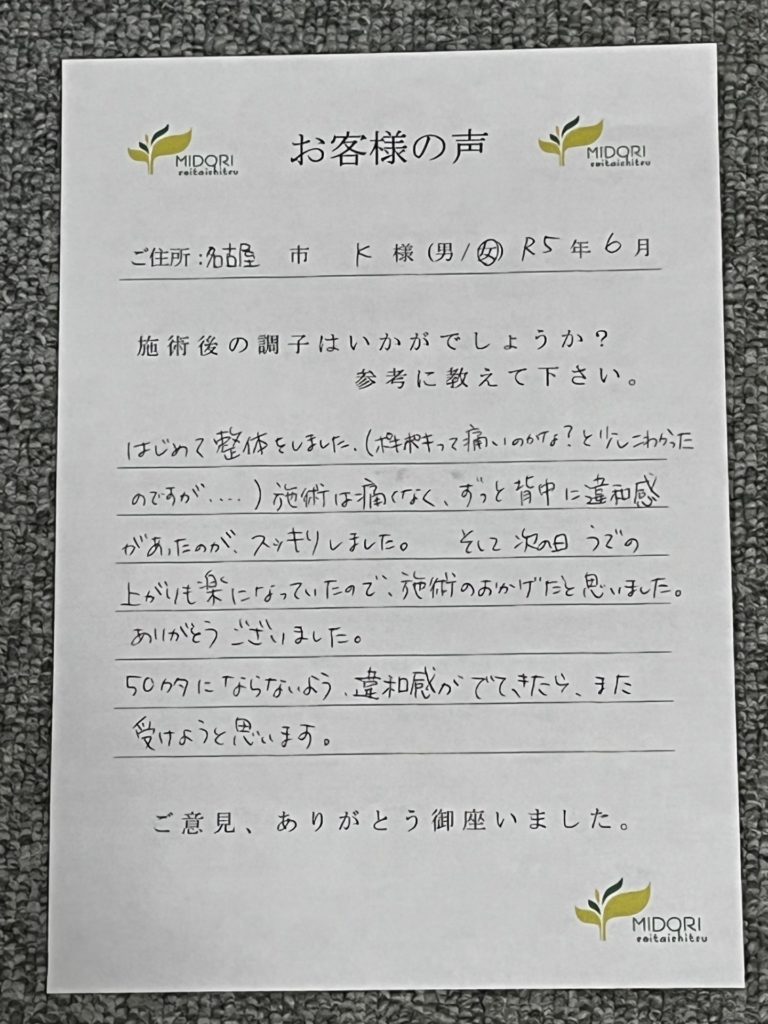 MIDORI
seitaishitsu
お客様の声
MIDORI
seitaishitsu
ご住所：名古屋 市 K 様 (男 / 女) R5 年 6 月
施術後の調子はいかがでしょうか？
参考に教えて下さい。
はじめて整体をしました。(ボキボキって痛いのかな？と少しこわかった
のですが、、、、) 施術は痛くなく、ずっと背中に違和感
があったのが、スッキリしました。 そして次の日 うでの
上がりも楽になっていたので、施術のおかげだと思いました。
ありがとうございました。
50カタにならないよう、違和感がでてきたら、また
受けようと思います。
ご意見、ありがとう御座いました。
MIDORI
seitaishitsu